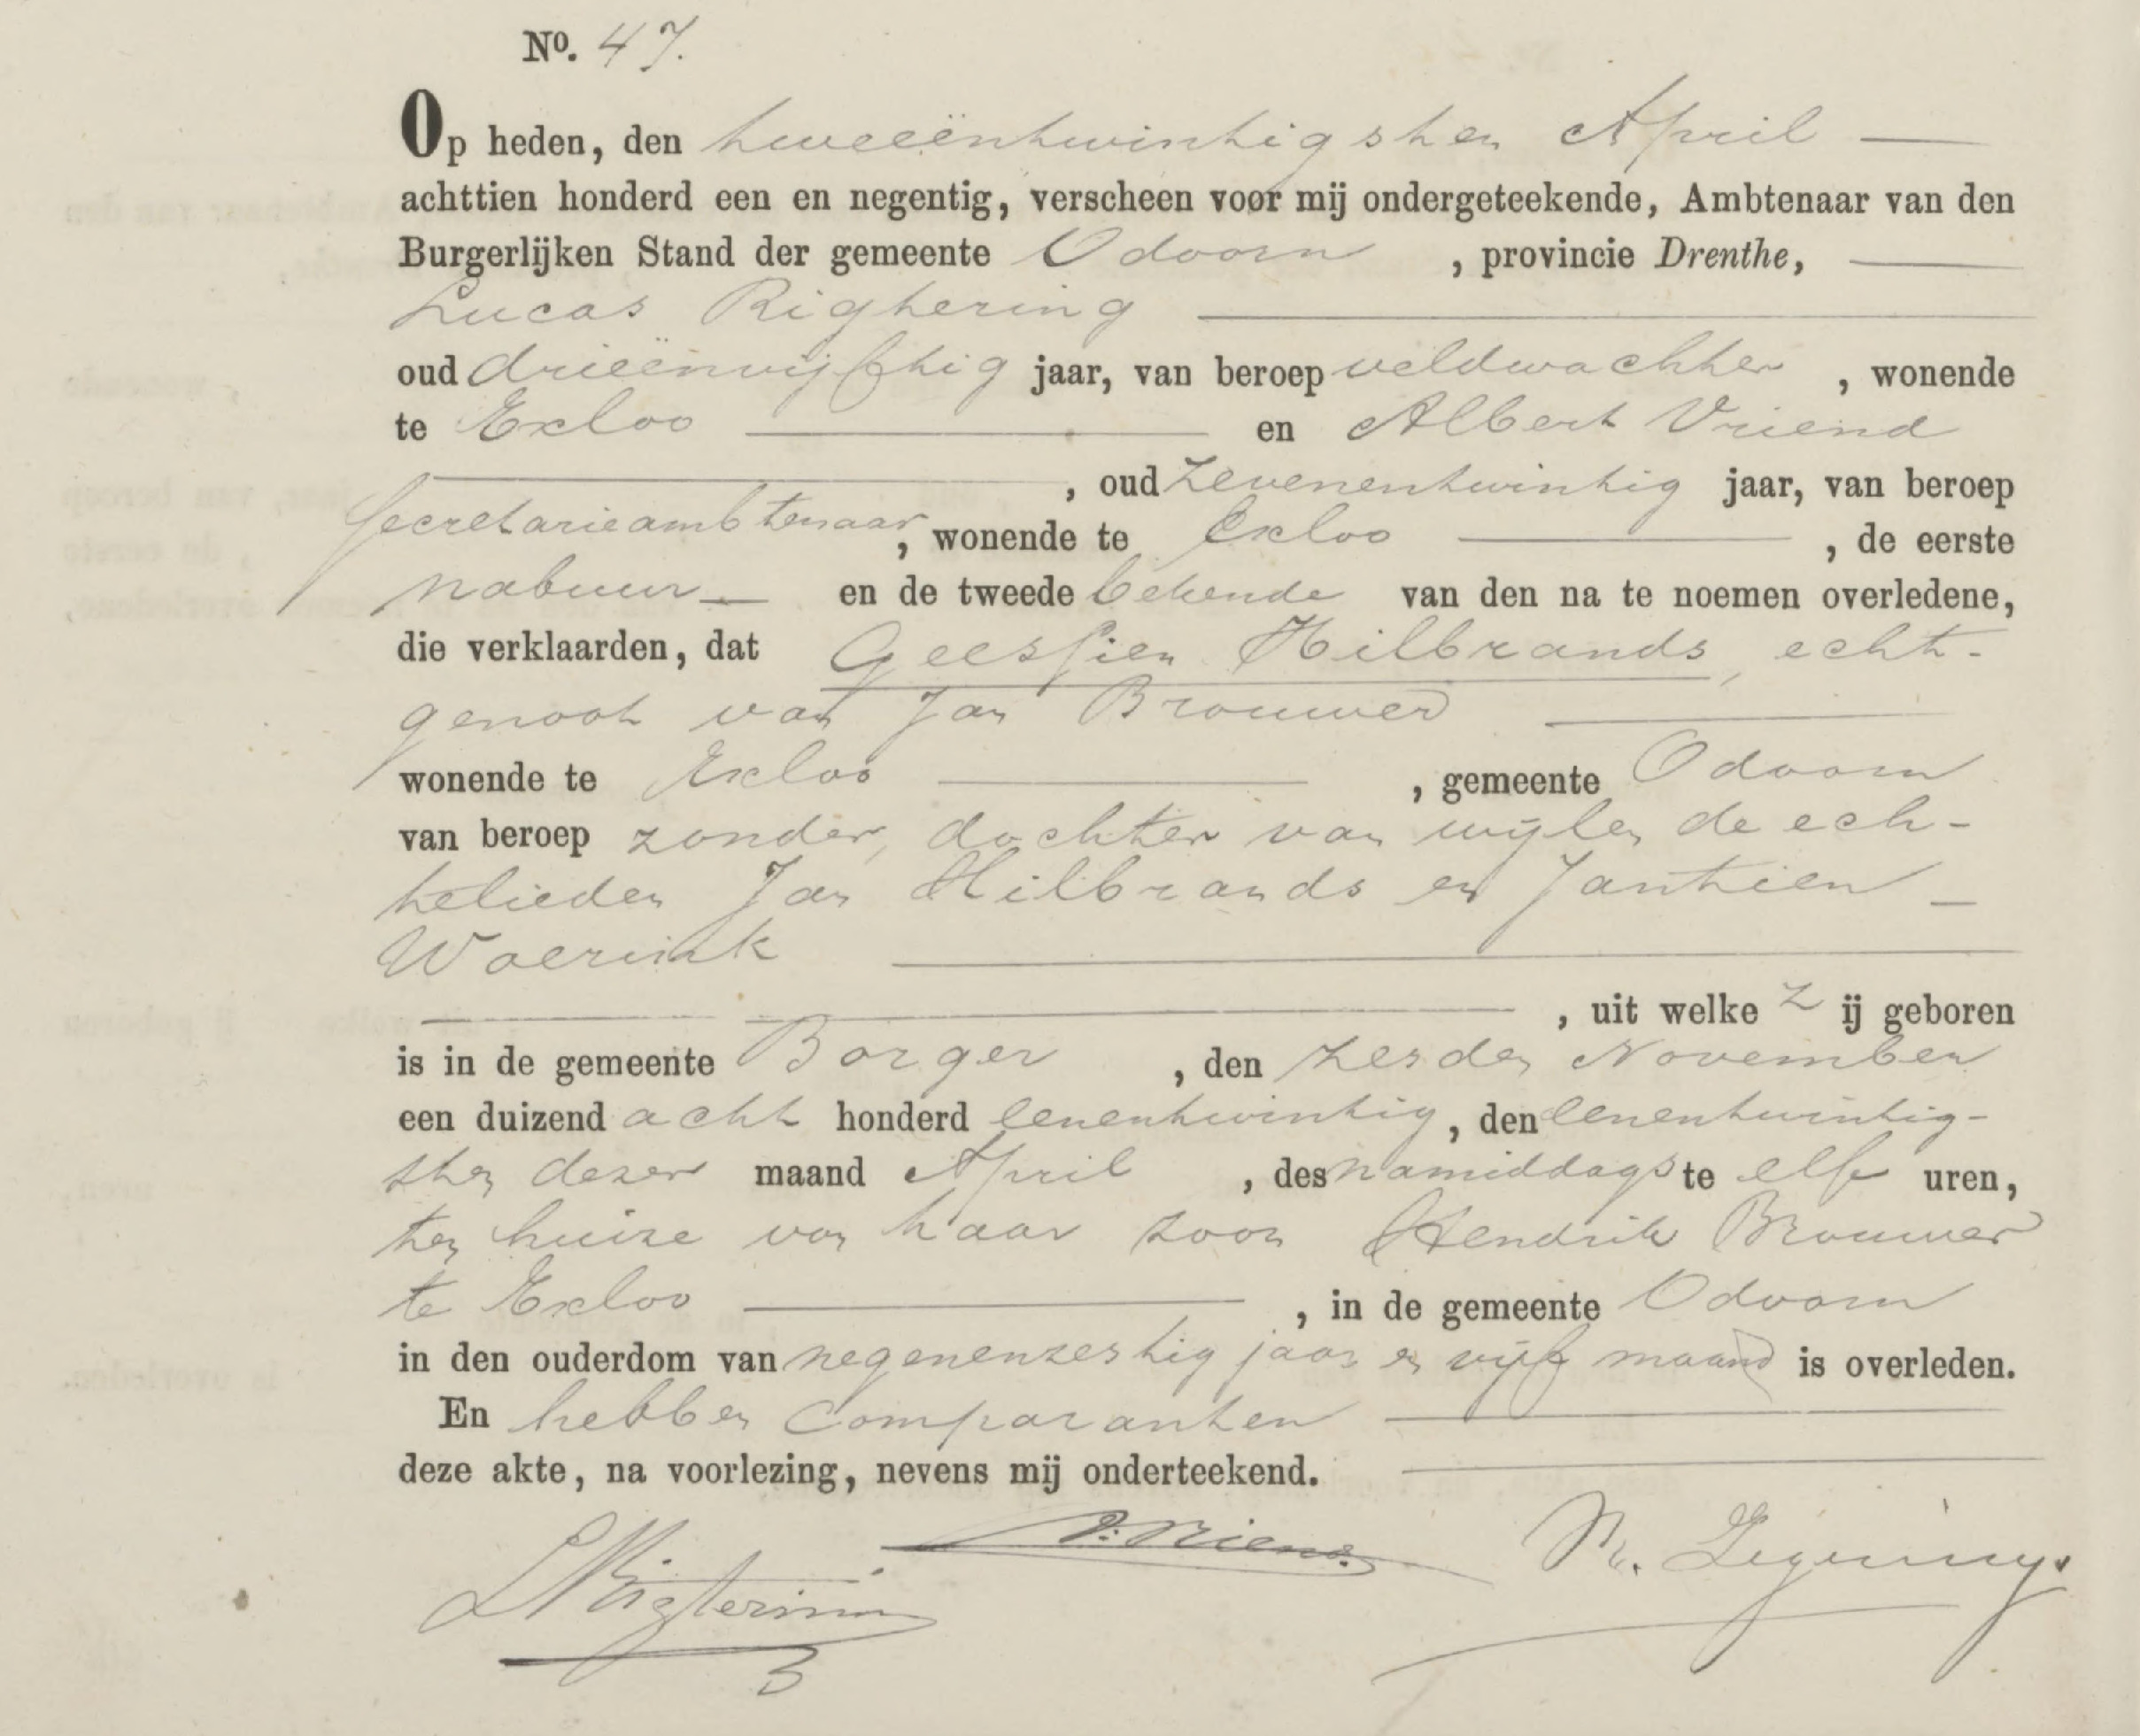 No. 47.
Op heden, den tweeëntwintigsten April
achttien honderd een en negentig, verscheen voor mij ondergeteekende, Ambtenaar van den
Burgerlijken Stand der gemeente Odoorn, provincie Drenthe,
Lucas Rigtering
oud drieënvijftig jaar, van beroep veldwachter, wonende
te Exloo en Albert Vriend
, oud zevenentwintig jaar, van beroep
Secretarieambtenaar, wonende te Exloo, de eerste
nabuur en de tweede bekende van den na te noemen overledene,
die verklaarden, dat Geessien Hilbrands, echt-
genoot van Jan Brouwer
wonende te Exloo, gemeente Odoorn
van beroep zonder, dochter van wijlen de ech-
telieden Jan Hilbrands en Jantien
Woerink
, uit welke zij geboren
is in de gemeente Borger, den zesden November
een duizend acht honderd eenentwintig, den eenentwintig-
sten dezer maand April, des namiddags te elf uren,
ten huize van haar zoon Hendrik Brouwer
te Exloo, in de gemeente Odoorn
in den ouderdom van negenenzestig jaar en vijf maand is overleden.
En hebben comparanten
deze akte, na voorlezing, nevens mij onderteekend.
L Rigtering Vriend.